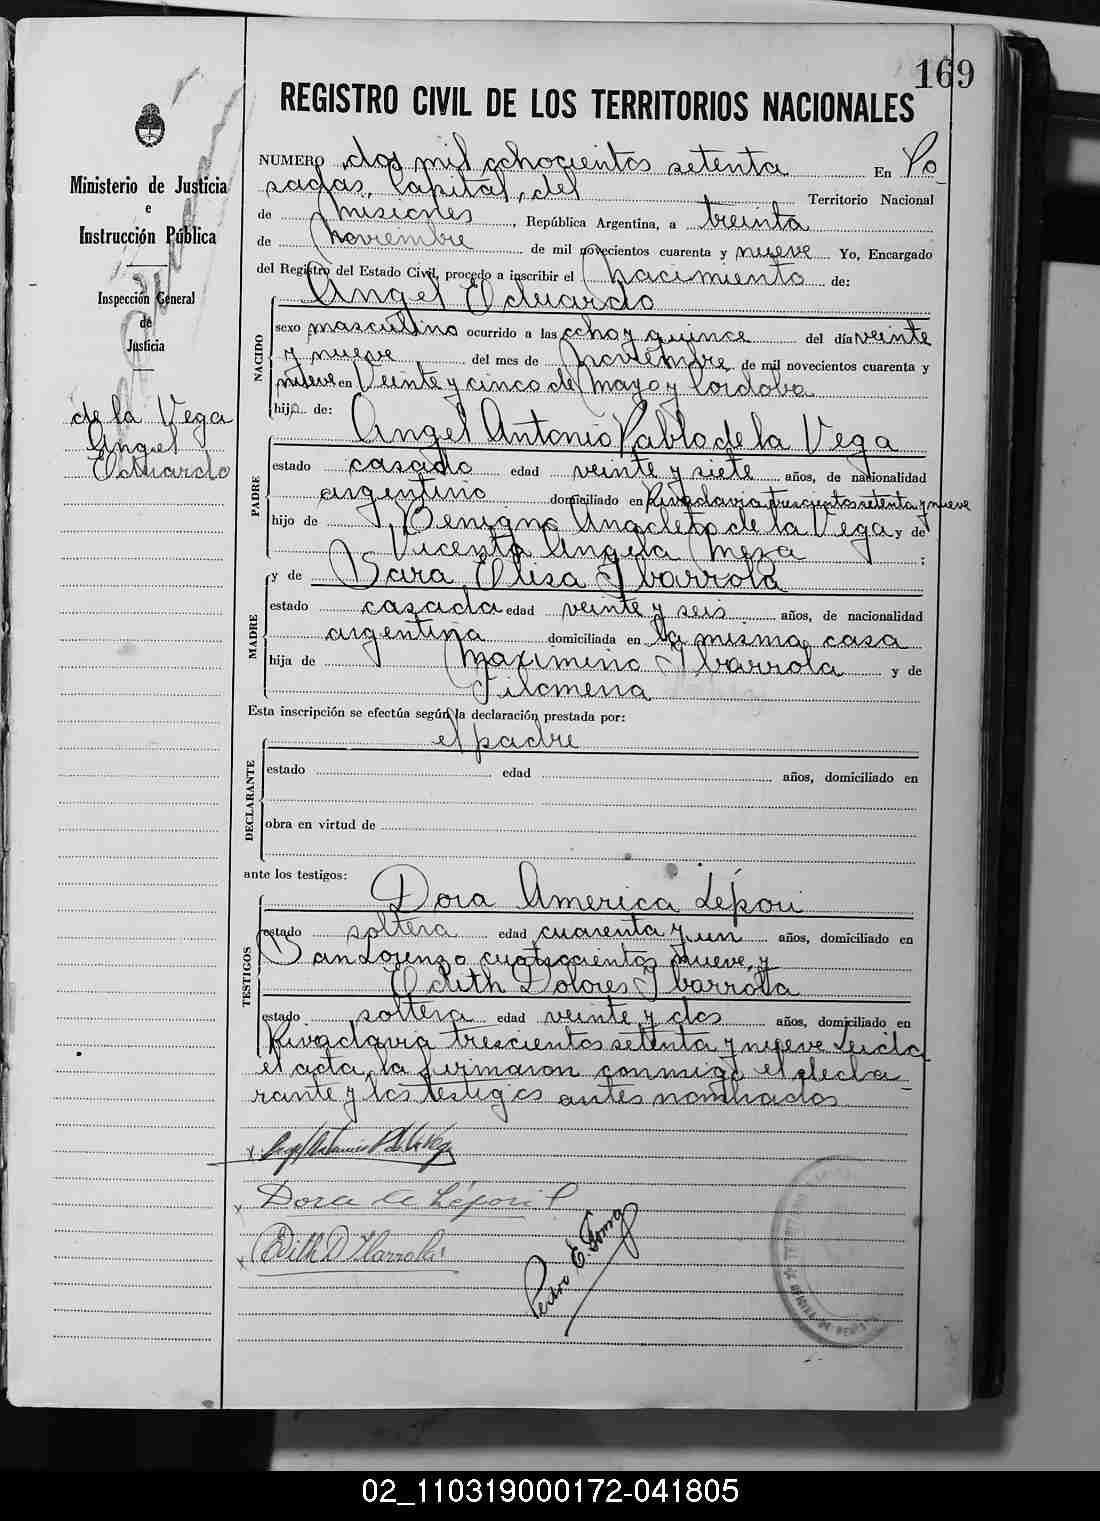 169
REGISTRO CIVIL DE LOS TERRITORIOS NACIONALES
Ministerio de Justicia
e
Instrucción Pública
Inspección General
de
Justicia
de la Vega
Angel
Eduardo
NUMERO dos mil ochocientos setenta En Po
sadas, Capital, del Territorio Nacional
de Misiones, República Argentina, a treinta
de noviembre de mil novecientos cuarenta y nueve Yo, Encargado
del Registro del Estado Civil, procedo a inscribir el nacimiento de:
Angel Eduardo
NACIDO
sexo masculino ocurrido a las ocho y quince del día veinte
y nueve del mes de noviembre de mil novecientos cuarenta y
nueve en Veinte y cinco de Mayo y Cordoba
hijo de:
Angel Antonio Pablo de la Vega
PADRE
estado casado edad veinte y siete años, de nacionalidad
argentino domiciliado en Rivadavia trescientos setenta y nueve
hijo de Benigno Anacleto de la Vega y de
Vicenta Angela Meza ;
y de Sara Elisa Ibarrola
MADRE
estado casada edad veinte y seis años, de nacionalidad
argentina domiciliada en la misma casa
hija de Maximino Ibarrola y de
Filomena
Esta inscripción se efectúa según la declaración prestada por:
el padre
DECLARANTE
estado edad años, domiciliado en
obra en virtud de
ante los testigos:
Dora America Lépori
TESTIGOS
estado soltera edad cuarenta y un años, domiciliado en
San Lorenzo cuatrocientos nueve, y
Edith Dolores Ibarrola
estado soltera edad veinte y dos años, domiciliado en
Rivadavia trescientos setenta y nueve Leida
el acta, la firmaron conmigo el decla-
rante y los testigos antes nombrados
Angel Antonio P de la Vega
Dora A Lépori
Edith D Ibarrola
Pedro E.
02_110319000172-041805